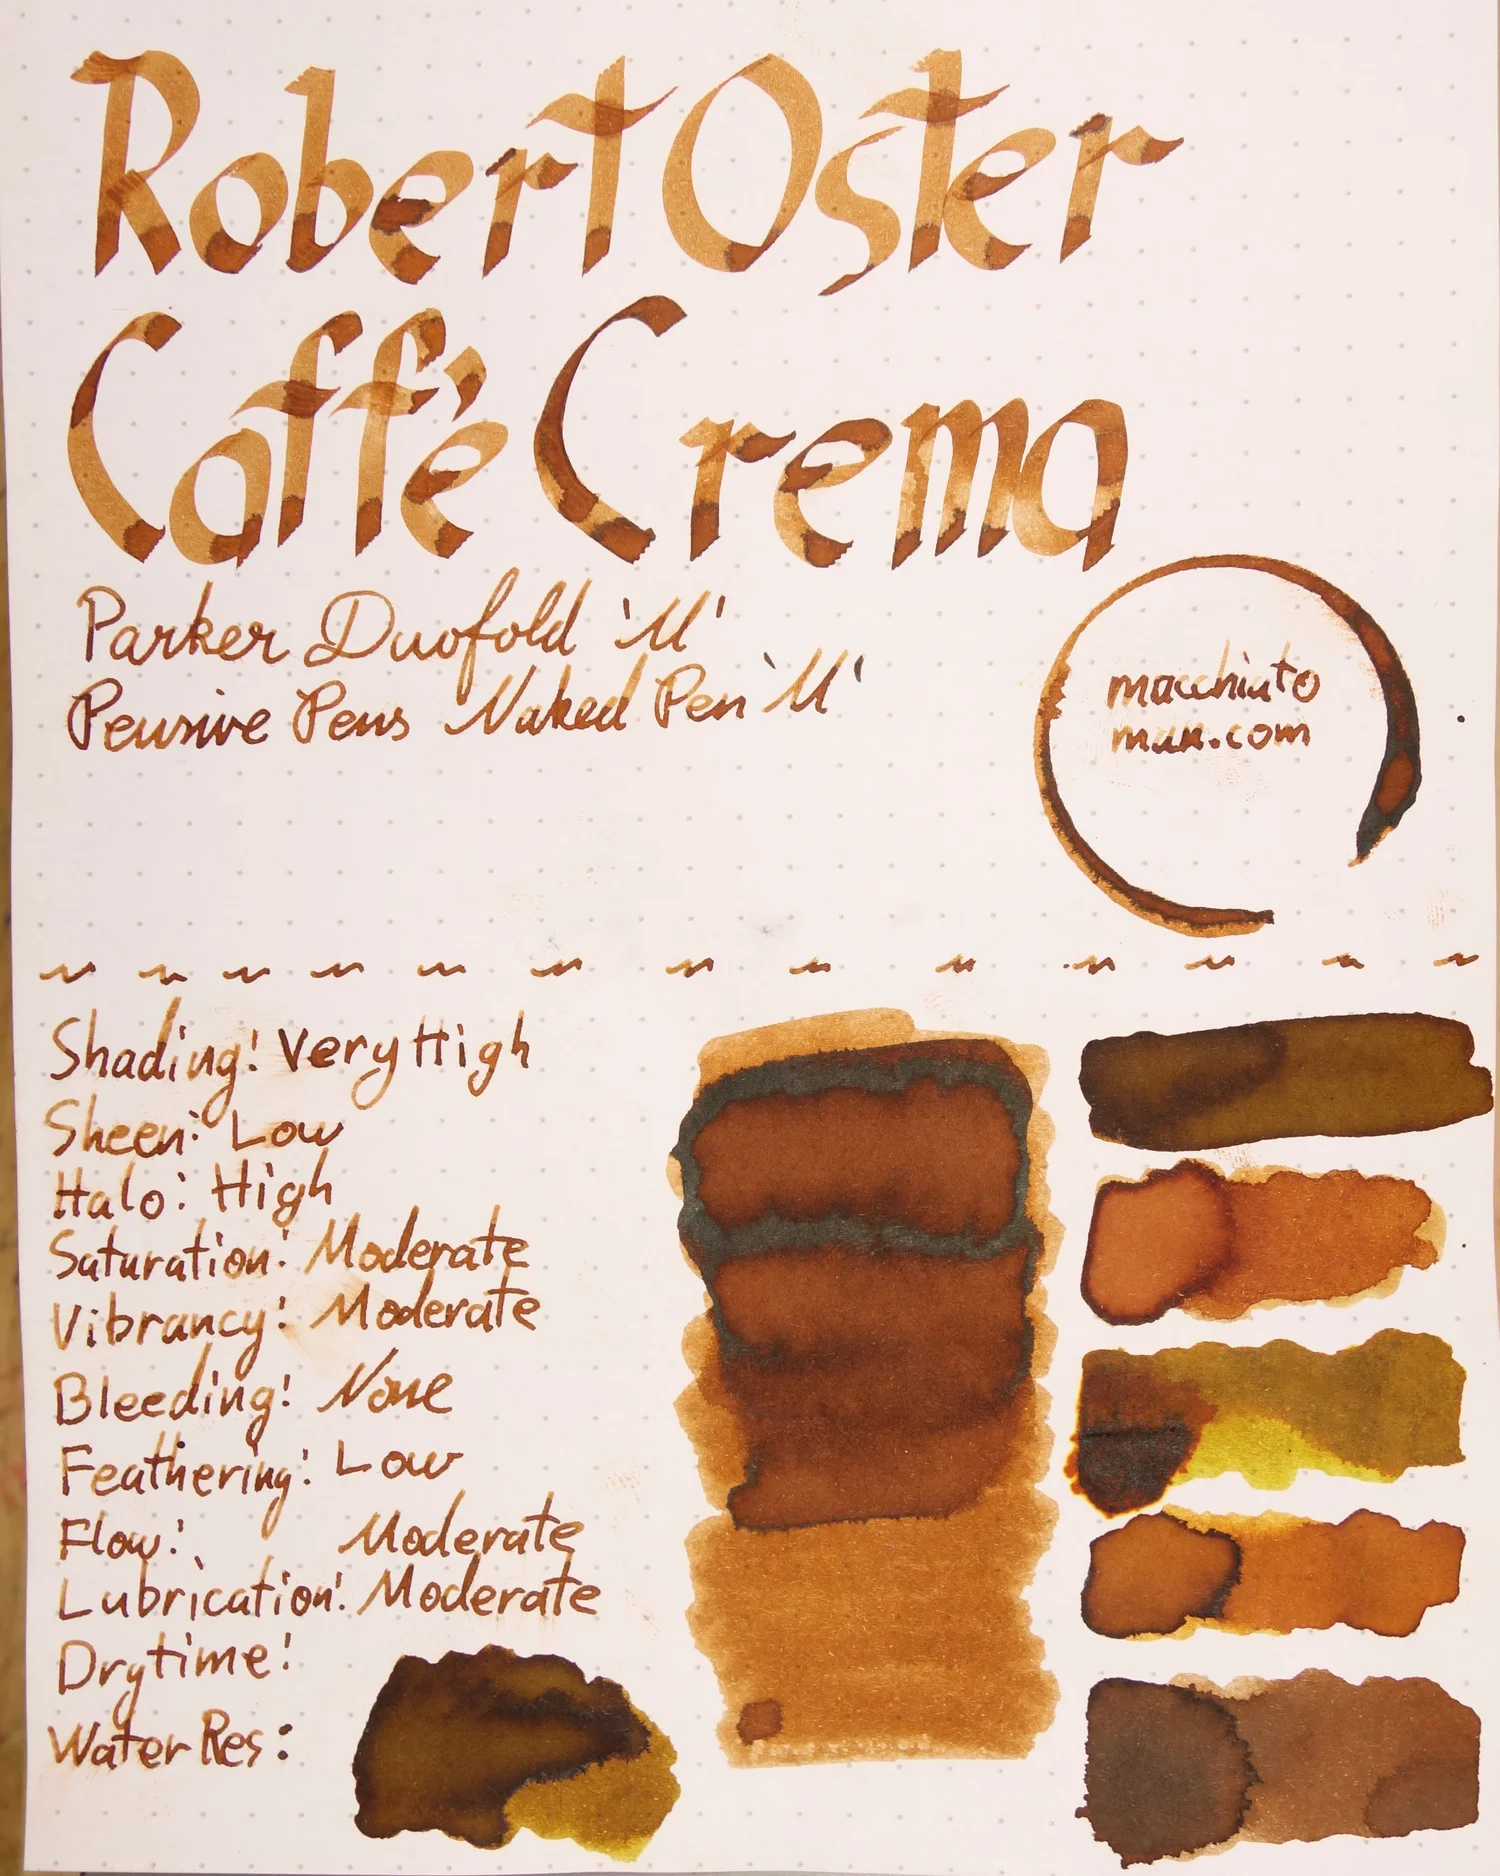 Robert Oster
Caffè Crema
Parker Duofold 'M'
Pensive Pens Naked Pen 'M'
macchiato
man.com
Shading: Very High
Sheen: Low
Halo: High
Saturation: Moderate
Vibrancy: Moderate
Bleeding: None
Feathering: Low
Flow: Moderate
Lubrication: Moderate
Drytime:
Water Res: